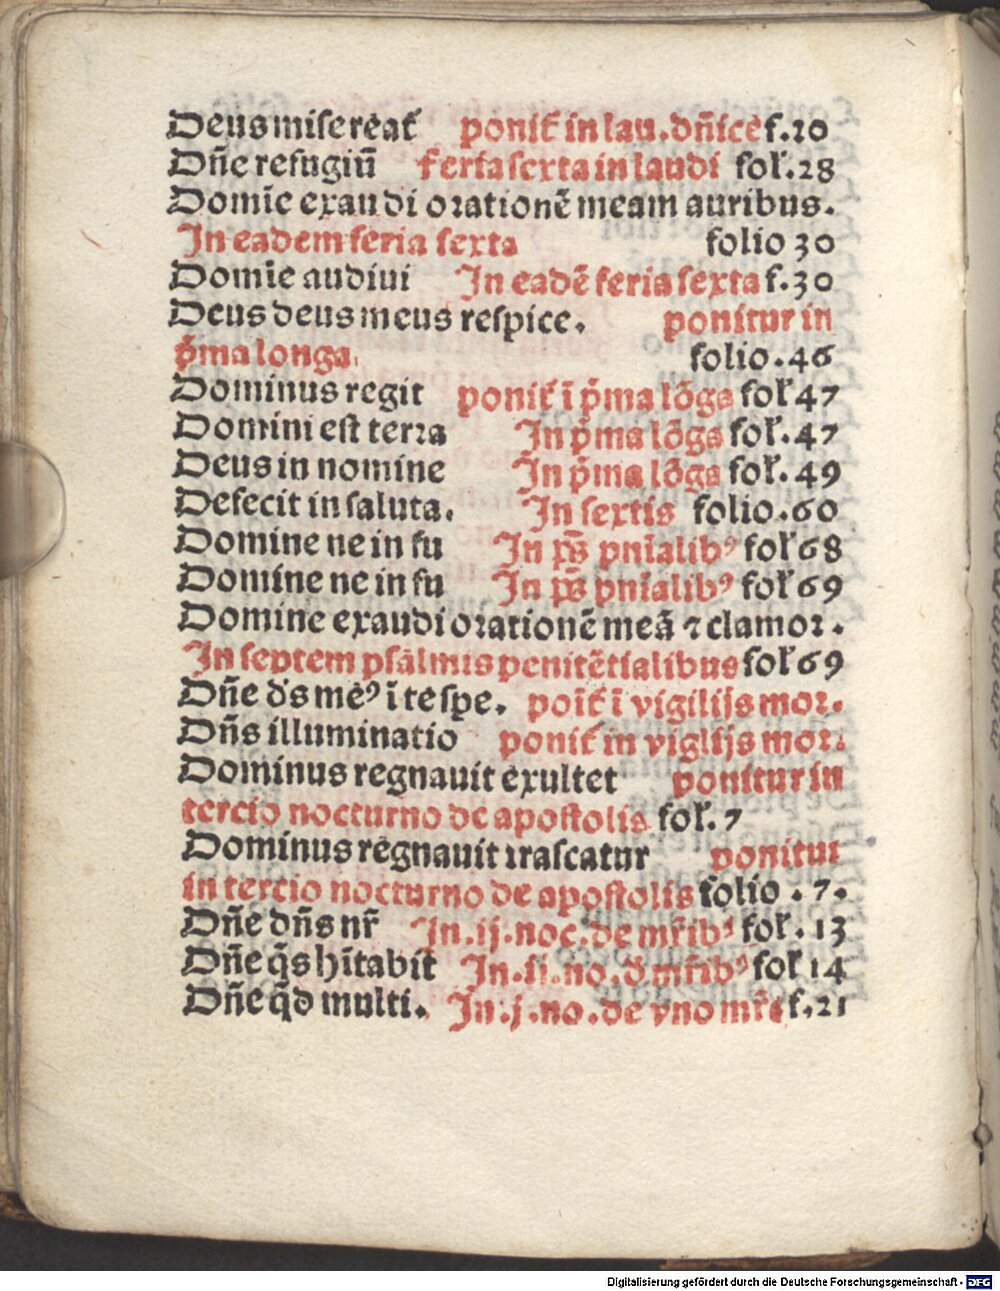 Deus misereat᷒ ponit᷒ in lau. dn̄ice f.10
Dn̄e refugiū feria sexta in laudi fol᷒.28
Domīe exaudi orationē meam auribus.
In eadem feria sexta folio 30
Domīe audiui In eadē feria sexta f.30
Deus deus meus respice. ponitur in
p̄ma longa. folio.46
Dominus regit ponit᷒ ī p̄ma lōga fol᷒ 47
Domini est terra In p̄ma lōga fol᷒.47
Deus in nomine In p̄ma lōga fol᷒.49
Defecit in saluta. In sextis folio.60
Domine ne in fu In ps̄ pn̄ialibꝰ fol᷒ 68
Domine ne in fu In ps̄ pn̄ialibꝰ fol᷒ 69
Domine exaudi orationē meā ⁊ clamor.
In septem psalmis penitētialibus fol᷒ 69
Dn̄e ds̄ meꝰ ī te spe. poīt᷒ ī vigilijs mor.
Dn̄s illuminatio ponit᷒ in viglijs mor.
Dominus regnauit exultet ponitur in
tercio nocturno de apostolis fol᷒.7
Dominus regnauit irascatur ponitur
in tercio nocturno de apostolis folio.7.
Dn̄e dn̄s nr̄ In.ij.noc.de mr̄ibꝰ fol᷒.13
Dn̄e q̄s hītabit In.ij.no.d̄ mr̄ibꝰ fol᷒ 14
Dn̄e qd̄ multi. In.j.no.de vno mr̄e f.21
Digitalisierung gefördert durch die Deutsche Forschungsgemeinschaft - DFG